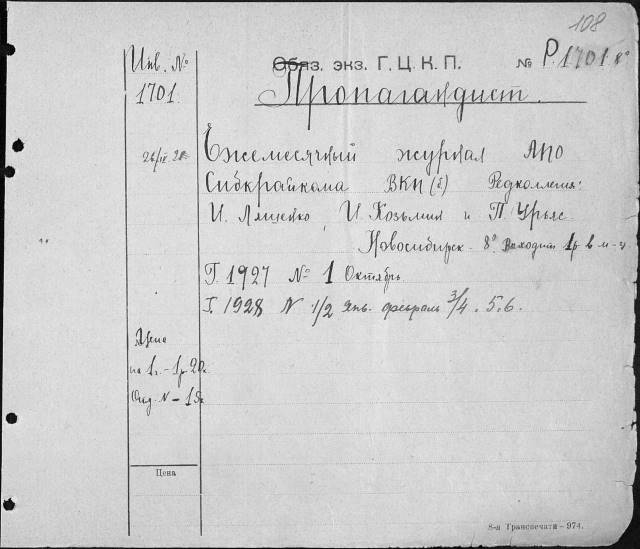 108
Инв. №
1701
Обяз. экз. Г. Ц. К. П. № Р.1701
Пропагандист.
Ежемесячный журнал АПО
Сибкрайкома ВКП(б) Редколлегия:
И. Ляшенко, И. Козьмин и П. Урьяс.
Новосибирск - 8° Выходит 1 р в м-ц
Г. 1927 № 1 Октябрь
Г. 1928 N 1/2 Янв. февраль 3/4. 5. 6.
Цена
на 1 г. - 1 р. 20 к.
Отд. N - 15 к
Цена
8-я Транспечати - 974.